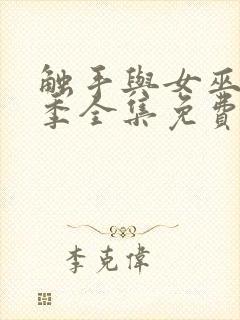 触手與女巫
季全集免費
李克偉